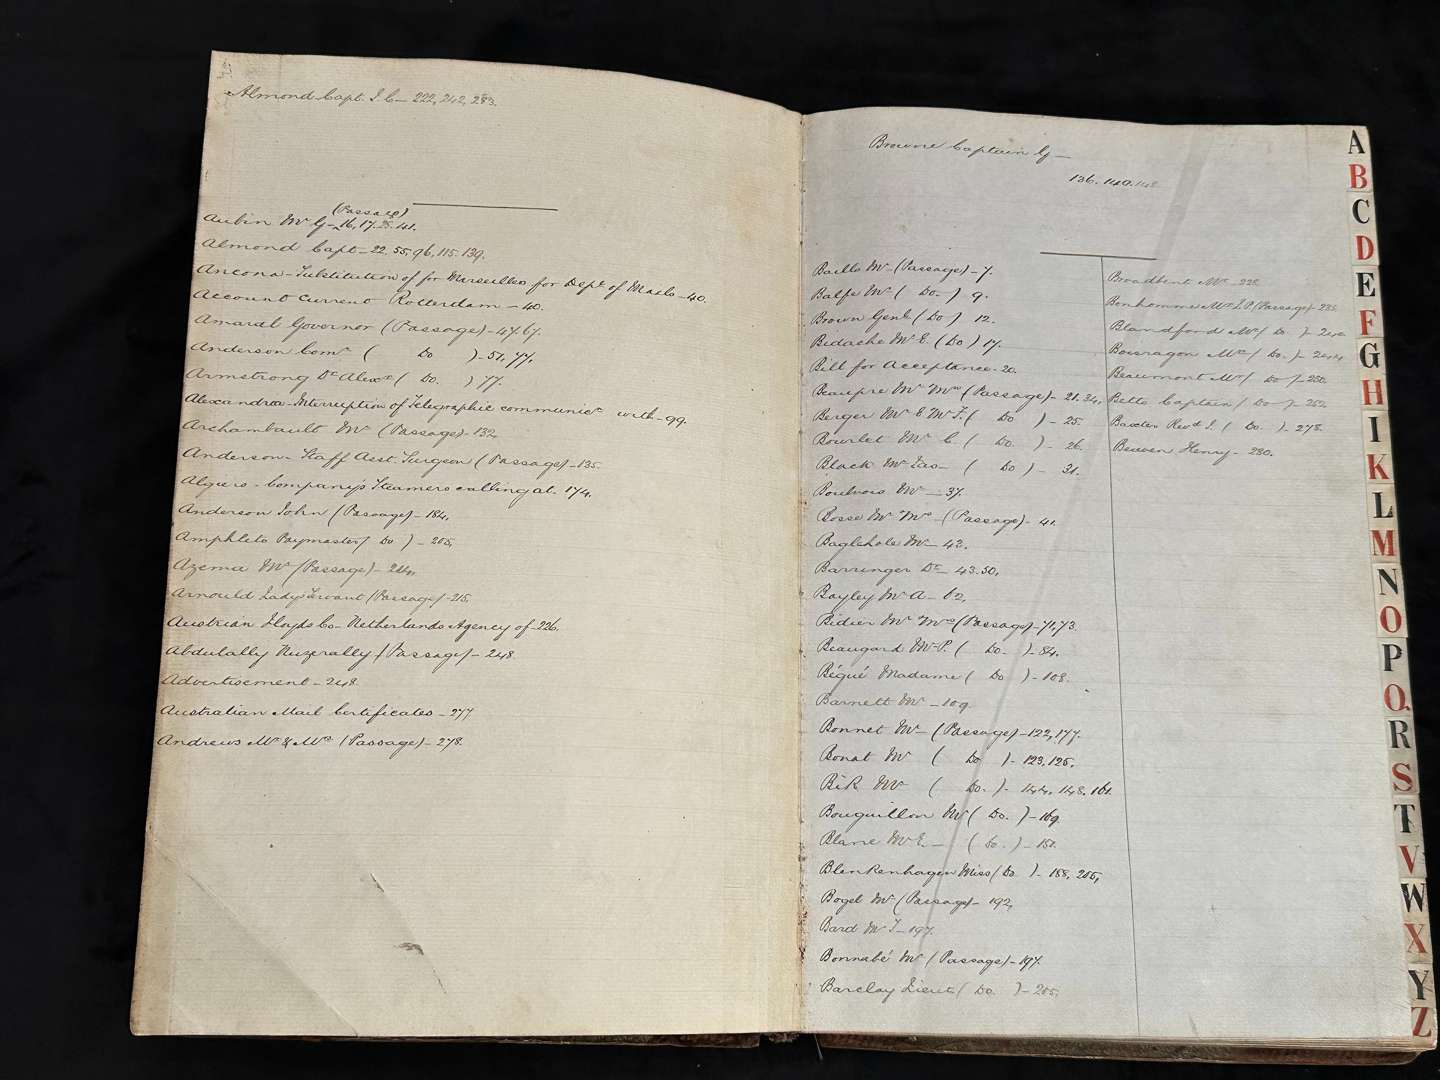 Almond Capt. J. C— 222, 242, 283.
(Passage)
Aubin Mr G—16, 17. 25. 141.
Almond Capt—22. 55. 96. 115. 139.
Ancona—Substitution of for Marseilles for Dept. of Mails—40.
Account Current Rotterdam—40.
Amaral Governor (Passage)—47. 67.
Anderson Comr ( Do )—51, 77.
Armstrong Dr Alexr ( Do. ) 77.
Alexandria—Interruption of Telegraphic communicn with—99.
Archambault Mr (Passage)—132,
Anderson—Staff Asst. Surgeon (Passage)—135.
Algiers—Company's Steamers calling at—174.
Anderson John (Passage)—184,
Amphlets Paymaster ( Do )—205,
Azema Mr (Passage)—214,
Arnould Lady's Servant (Passage)—215,
Austrian Lloyds Co—Netherlands Agency of—226.
Abdulally Nuzerally (Passage)—248.
Advertisement—248.
Australian Mail Certificates—277
Andrews Mr & Mrs (Passage)—278.
Browne Captain G—
136. 140. 148
Baillo Mr—(Passage)—7.
Balfe Mr ( Do— ) 9.
Brown Genl ( Do ) 12.
Bidache Mr E. ( Do ) 17.
Bill for Acceptance—20.
Beaupre Mr Mrs (Passage)—21. 34,
Berger Mr E Mr F. ( Do )—25.
Bourlet Mr C. ( Do )—26.
Black Mr Jas—( Do )—31.
Boutvois Mr—37.
Bosse Mr Mrs—(Passage)—41.
Baglehole Mr—42.
Barringer Dr—43. 50,
Bayley Mr A—62,
Bidier Mr Mrs (Passage)—71, 73.
Beaugard Mr P. ( Do. )—84.
Bégué Madame ( Do )—108.
Barnett Mr—109.
Bonnet Mr—(Passage)—122, 177.
Bonat Mr ( Do )—123, 125.
Bik Mr ( Do. )—144, 148, 161.
Bouquillon Mr ( Do. )—169.
Blane Mr E.—( Do. )—181.
Blenkenhagen Miss ( Do. )—188, 205,
Bogel Mr (Passage)—192,
Bard Mr J—197.
Bonnabé Mr (Passage)—197.
Barclay Lieut ( Do. )—205,
Broadbent Mr—225.
Bonhomme Mr J. P. (Passage)—235.
Blandford Mr ( Do. )—242
Boisragon Mrs ( Do. )—244,
Beaumont Mr ( Do )—250.
Betts Captain ( Do— )—252.
Baxter Revd J. ( Do. )—278.
Beuven Henry—280.
A
B
C
D
E
F
G
H
I
K
L
M
N
O
P
Q
R
S
T
V
W
X
Y
Z